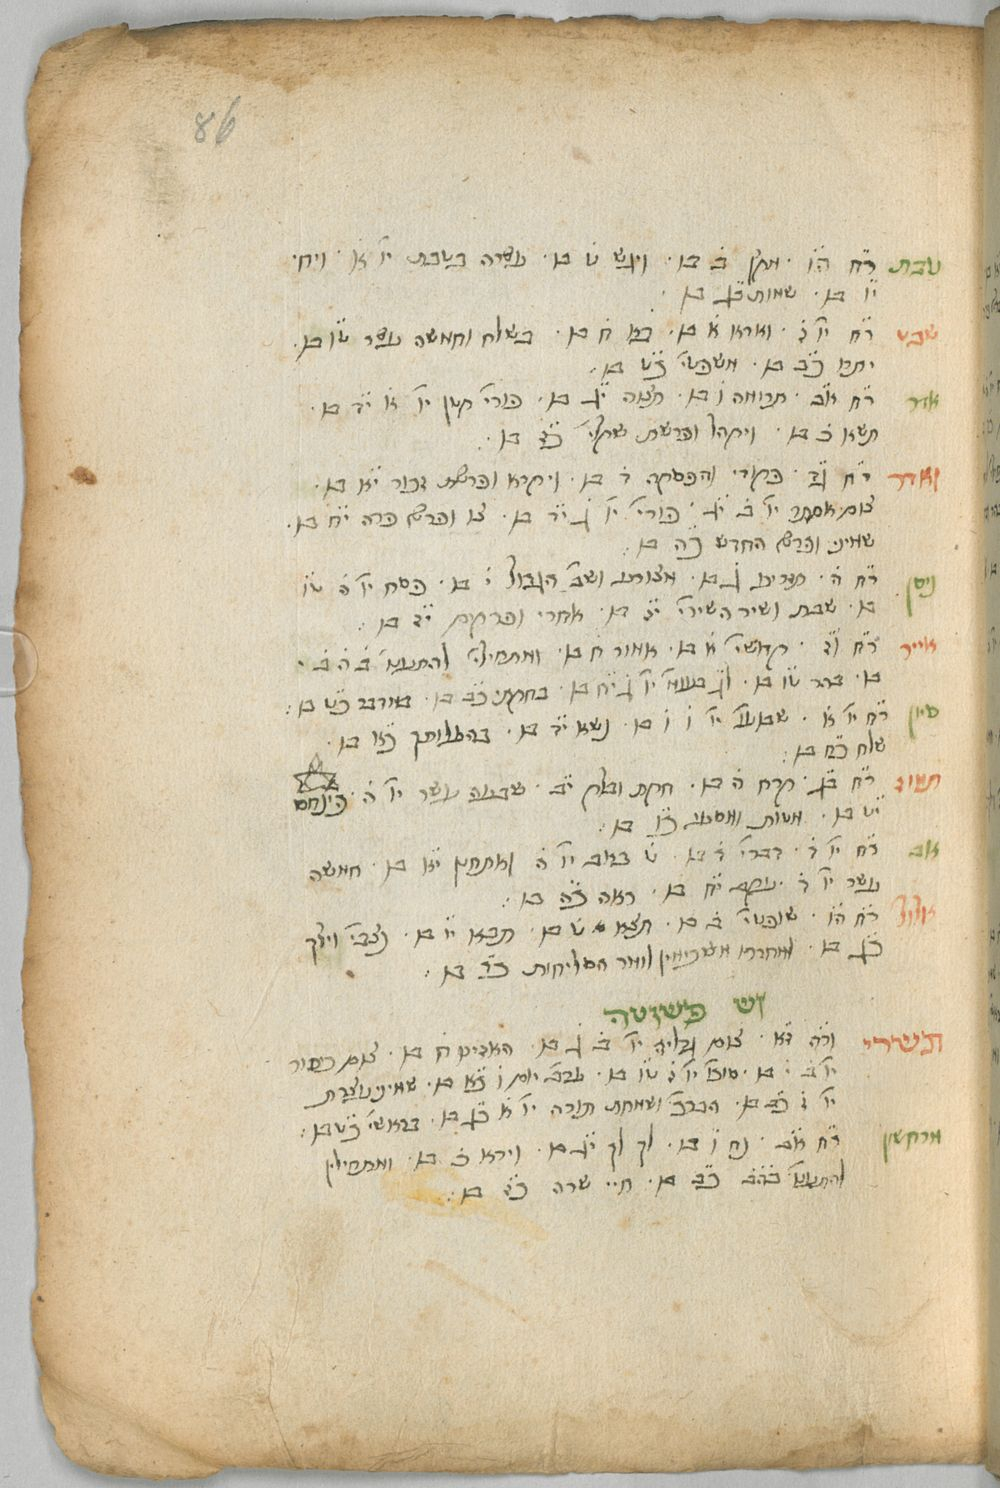 86
טבת ר״ח ה״ו · מקץ ב׳ בו · ויגש ט׳ בו · עשרה בטבת י״ו א׳ · ויחי
י״ו בו · שמות כ״ג בו ·
שבט ר״ח י״ו ז׳ · וארא א׳ בו · בא ח׳ בו · בשלח וחמשה עשר ט״ו בו ·
יתרו כ״ב בו · משפטי׳ כ״ט בו :
אדר ר״ח א״ב · תרומה ו׳ בו · תצוה י״ג בו · פורי׳ קטן י״ו א׳ י״ד בו ·
תשא כ׳ בו · ויקהל ופרשת שקלי׳ כ״ז בו :
ואדר ר״ח ג״ד · פקודי והפסקה ד׳ בו · ויקרא ופרשת זכור י״א בו ·
צום אסתר י״ו ב׳ י״ג · פורי׳ י״ו ג׳ י״ד בו · צו ופרש׳ פרה י״ח בו ·
שמיני ופרש׳ החדש כ״ה בו :
ניסן ר״ח ה׳ · תזריע ג׳ בו · מצורע ושב׳ הגדול י׳ בו · פסח י״ו ה׳ ט״ו
בו · שבת ושיר השירי׳ י״ז בו · אחרי ופרקים י״ד בו :
אייר ר״ח ו״ז · קדושי׳ א׳ בו · אמור ח׳ בו · ומתחילי׳ להתענו׳ ב׳ ה׳ ב׳ י׳
בו · בהר ט״ו בו · ל״ג בעומר י״ו ג׳ י״ח בו · בחקתי כ״ב בו · במדבר כ״ט בו :
סיון ר״ח י״ו א׳ · שבועו׳ י״ו ו׳ ו׳ בו · נשא י״ד בו · בהעלותך כ״א בו ·
שלח כ״ח בו :
תמוז ר״ח ב״ג · קרח ה׳ בו · חקת ובלק י״ב · שבעה עשר י״ו ה׳ · פינחס
י״ט בו · מטות ומסעי כ״ו בו :
אב ר״ח י״ו ד׳ · דברי׳ ד׳ בו · ט׳ באב י״ו ה׳ ואתחנן י״א בו · חמשה
עשר י״ו ד׳ · עקב י״ח בו · ראה כ״ה בו :
אלול ר״ח ה״ו · שופטי׳ ב׳ בו · תצא ט׳ בו · תבא י״ו בו · נצבי׳ וילך
כ״ג בו · למחרת משכימין לומר הסליחות כ״ד בו :
זש פשוטה
תשרי ור״ה ז״א · צום גדליה י״ו ב׳ ג׳ בו · האזינו ח׳ בו · צום כיפור
י״ו ב׳ י׳ בו · סוכו׳ י״ו ז׳ ט״ו בו · ערב׳ יום ו׳ כ״א בו · שמיני עצרת
י״ו ז׳ כ״ב בו · הברכ׳ ושמחת תורה י״ו א׳ כ״ג בו · בראשי׳ כ״ט בו :
מרחשון ר״ח א״ב · נח ו׳ בו · לך לך י״ג בו · וירא כ׳ בו · ומתחילין
להתענו׳ בה״ב כ״ב בו · חיי שרה כ״ז בו :